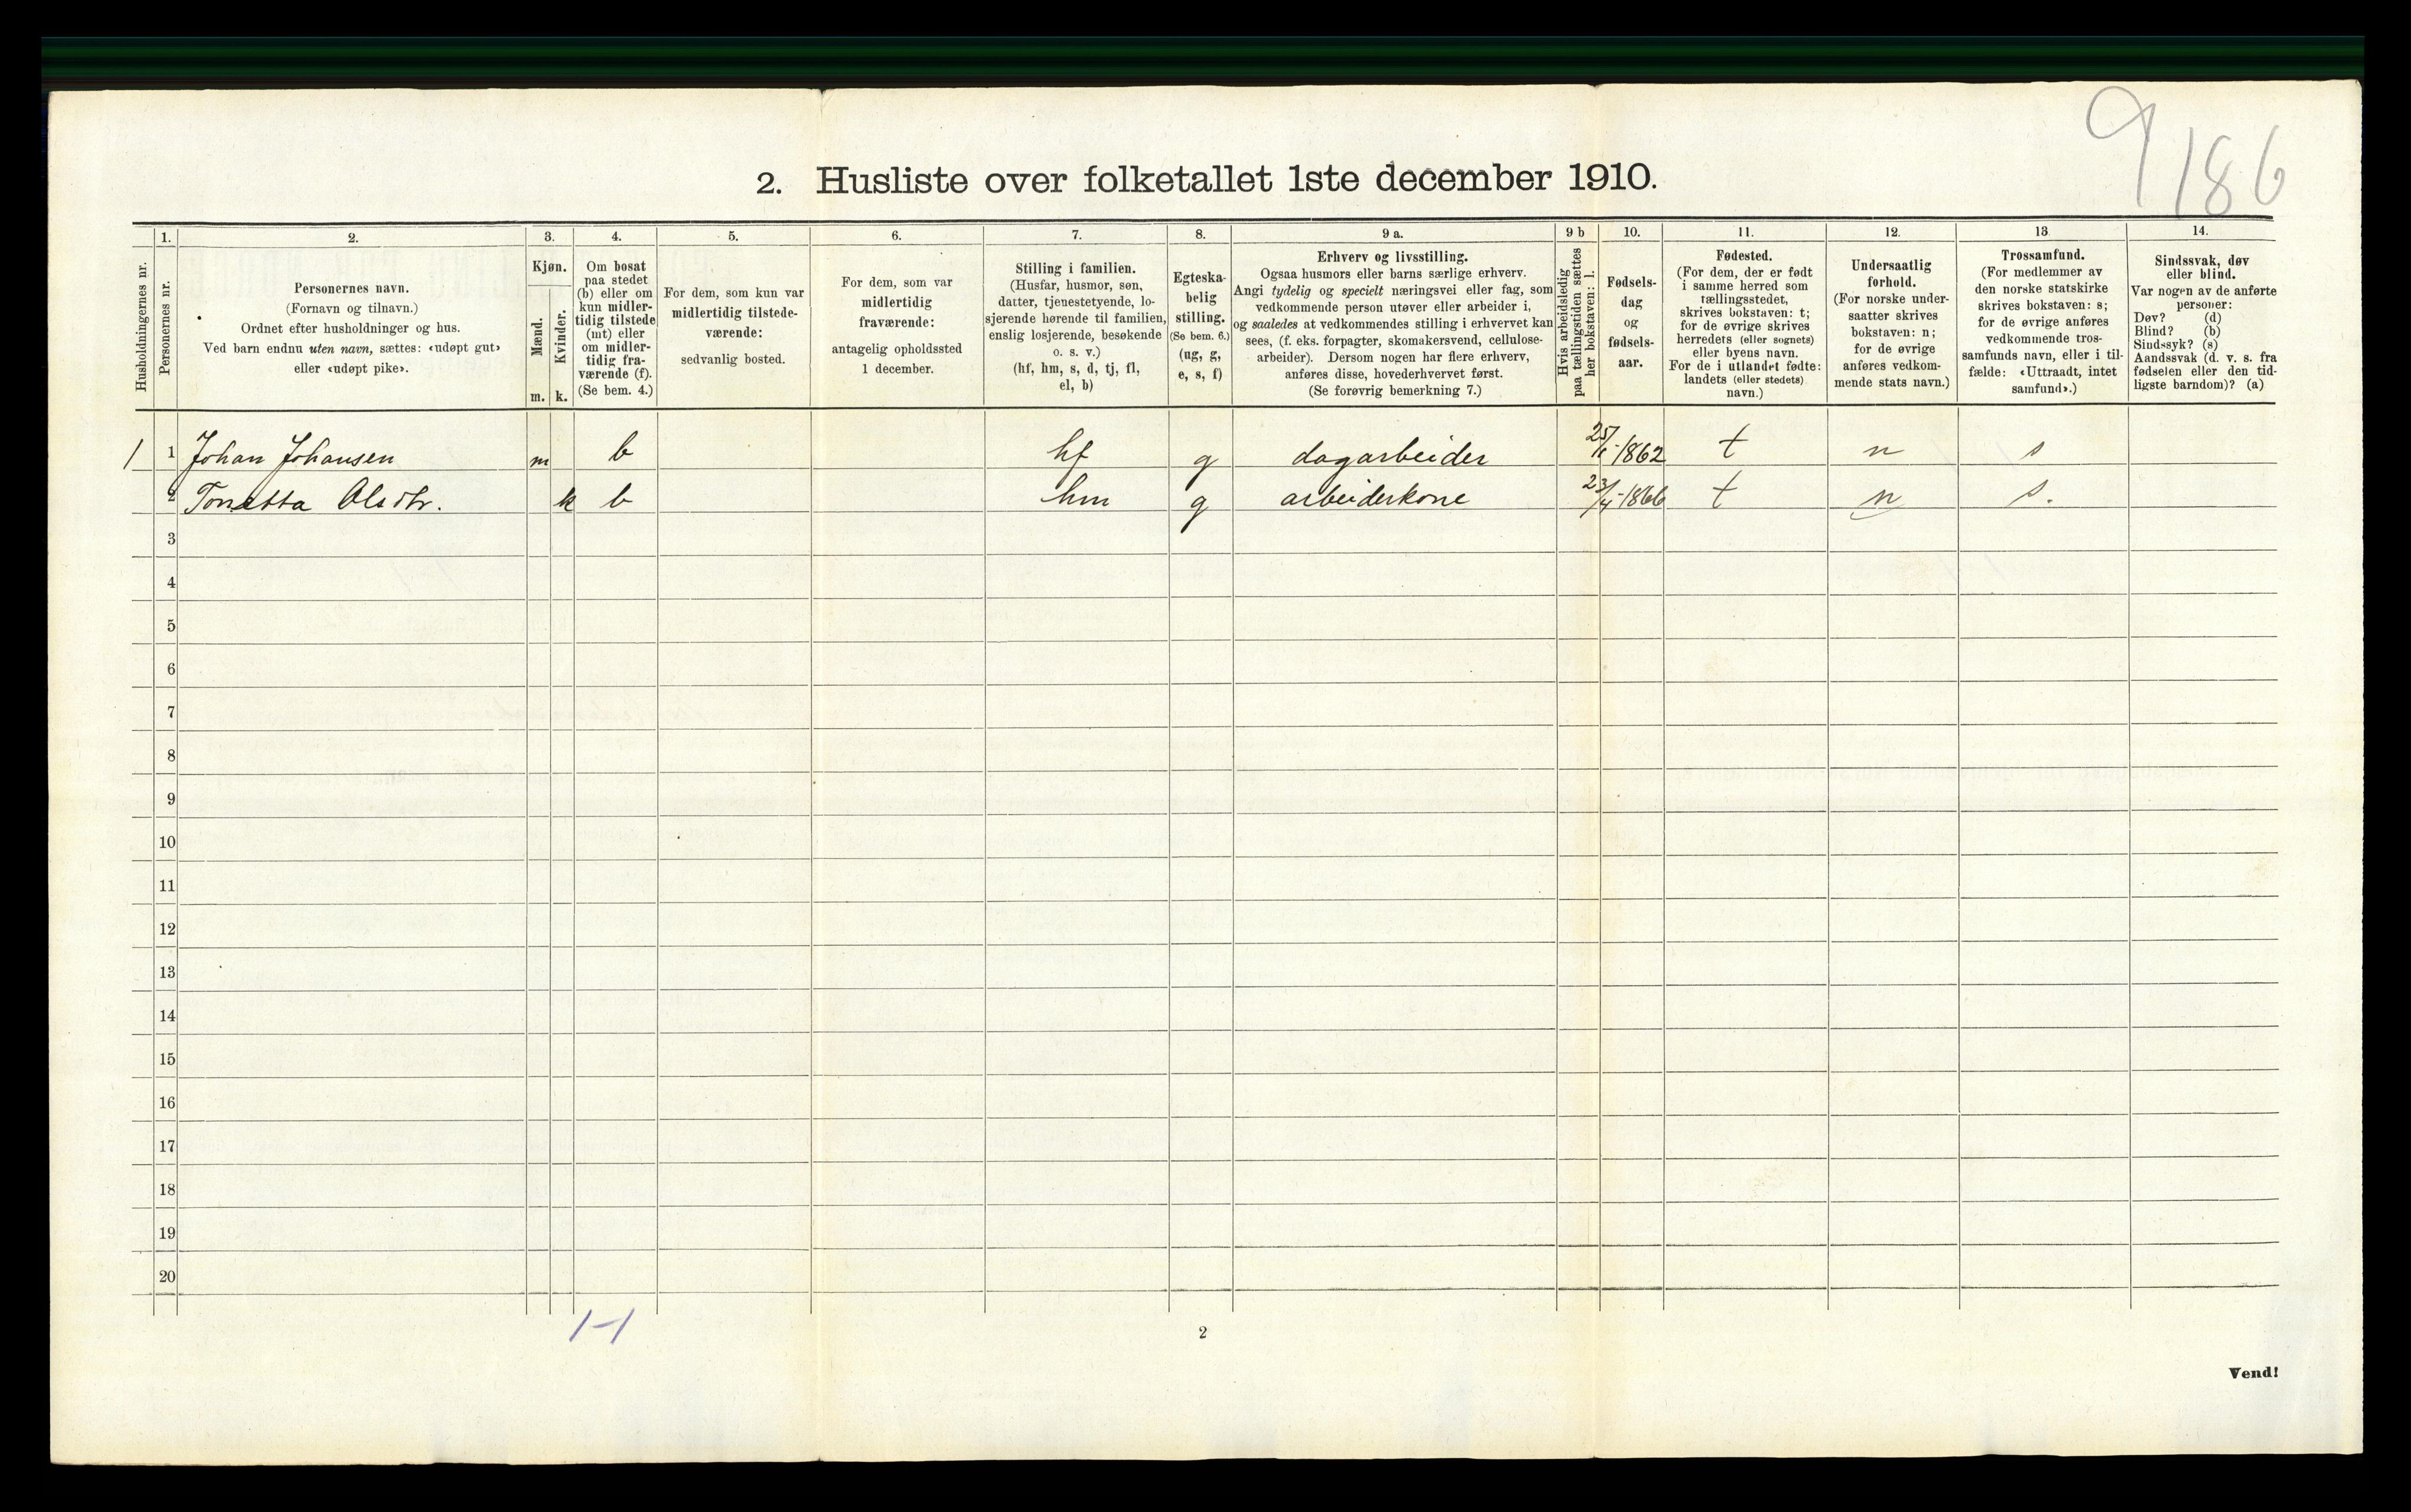 9
186
2. Husliste over folketallet 1ste december 1910.
Husholdningernes nr.
1.
Personernes nr.
2.
Personernes navn.
(Fornavn og tilnavn.)
Ordnet efter husholdninger og hus.
Ved barn endnu uten navn, sættes: «udøpt gut»
eller «udøpt pike».
3.
Kjøn.
Mænd.
Kvinder.
m. k.
4.
Om bosat
paa stedet
(b) eller om
kun midler-
tidig tilstede
(mt) eller
om midler-
tidig fra-
værende (f).
(Se bem. 4.)
5.
For dem, som kun var
midlertidig tilstede-
værende:
sedvanlig bosted.
6.
For dem, som var
midlertidig
fraværende:
antagelig opholdssted
1 december.
7.
Stilling i familien.
(Husfar, husmor, søn,
datter, tjenestetyende, lo-
sjerende hørende til familien,
enslig losjerende, besøkende
o. s. v.)
(hf, hm, s, d, tj, fl,
el, b)
8.
Egteska-
belig
stilling.
(Se bem. 6.)
(ug, g,
e, s, f)
9 a.
Erhverv og livsstilling.
Ogsaa husmors eller barns særlige erhverv.
Angi tydelig og specielt næringsvei eller fag, som
vedkommende person utøver eller arbeider i,
og saaledes at vedkommendes stilling i erhvervet kan
sees, (f. eks. forpagter, skomakersvend, cellulose-
arbeider). Dersom nogen har flere erhverv,
anføres disse, hovederhvervet først.
(Se forøvrig bemerkning 7.)
9 b
Hvis arbeidsledig
paa tællingstiden sættes
her bokstaven: l.
10.
Fødsels-
dag
og
fødsels-
aar.
11.
Fødested.
(For dem, der er født
i samme herred som
tællingsstedet,
skrives bokstaven: t;
for de øvrige skrives
herredets (eller sognets)
eller byens navn.
For de i utlandet fødte:
landets (eller stedets)
navn.)
12.
Undersaatlig
forhold.
(For norske under-
saatter skrives
bokstaven: n;
for de øvrige
anføres vedkom-
mende stats navn.)
13
Trossamfund.
(For medlemmer av
den norske statskirke
skrives bokstaven: s;
for de øvrige anføres
vedkommende tros-
samfunds navn, eller i til-
fælde: «Uttraadt, intet
samfund».)
14.
Sindssvak, døv
eller blind.
Var nogen av de anførte
personer:
Døv? (d)
Blind? (b)
Sindssyk? (s)
Aandssvak (d. v. s. fra
fødselen eller den tid-
ligste barndom)? (a)
1 1 Johan Johansen m b hf g dagarbeider 25/1-1862 t n s
2 Tonetta Olsdtr. k b hm g arbeiderkone 23/4-1866 t n s.
3
4
5
6
7
8
9
10
11
12
13
14
15
16
17
18
19
20
1-1
2
Vend!